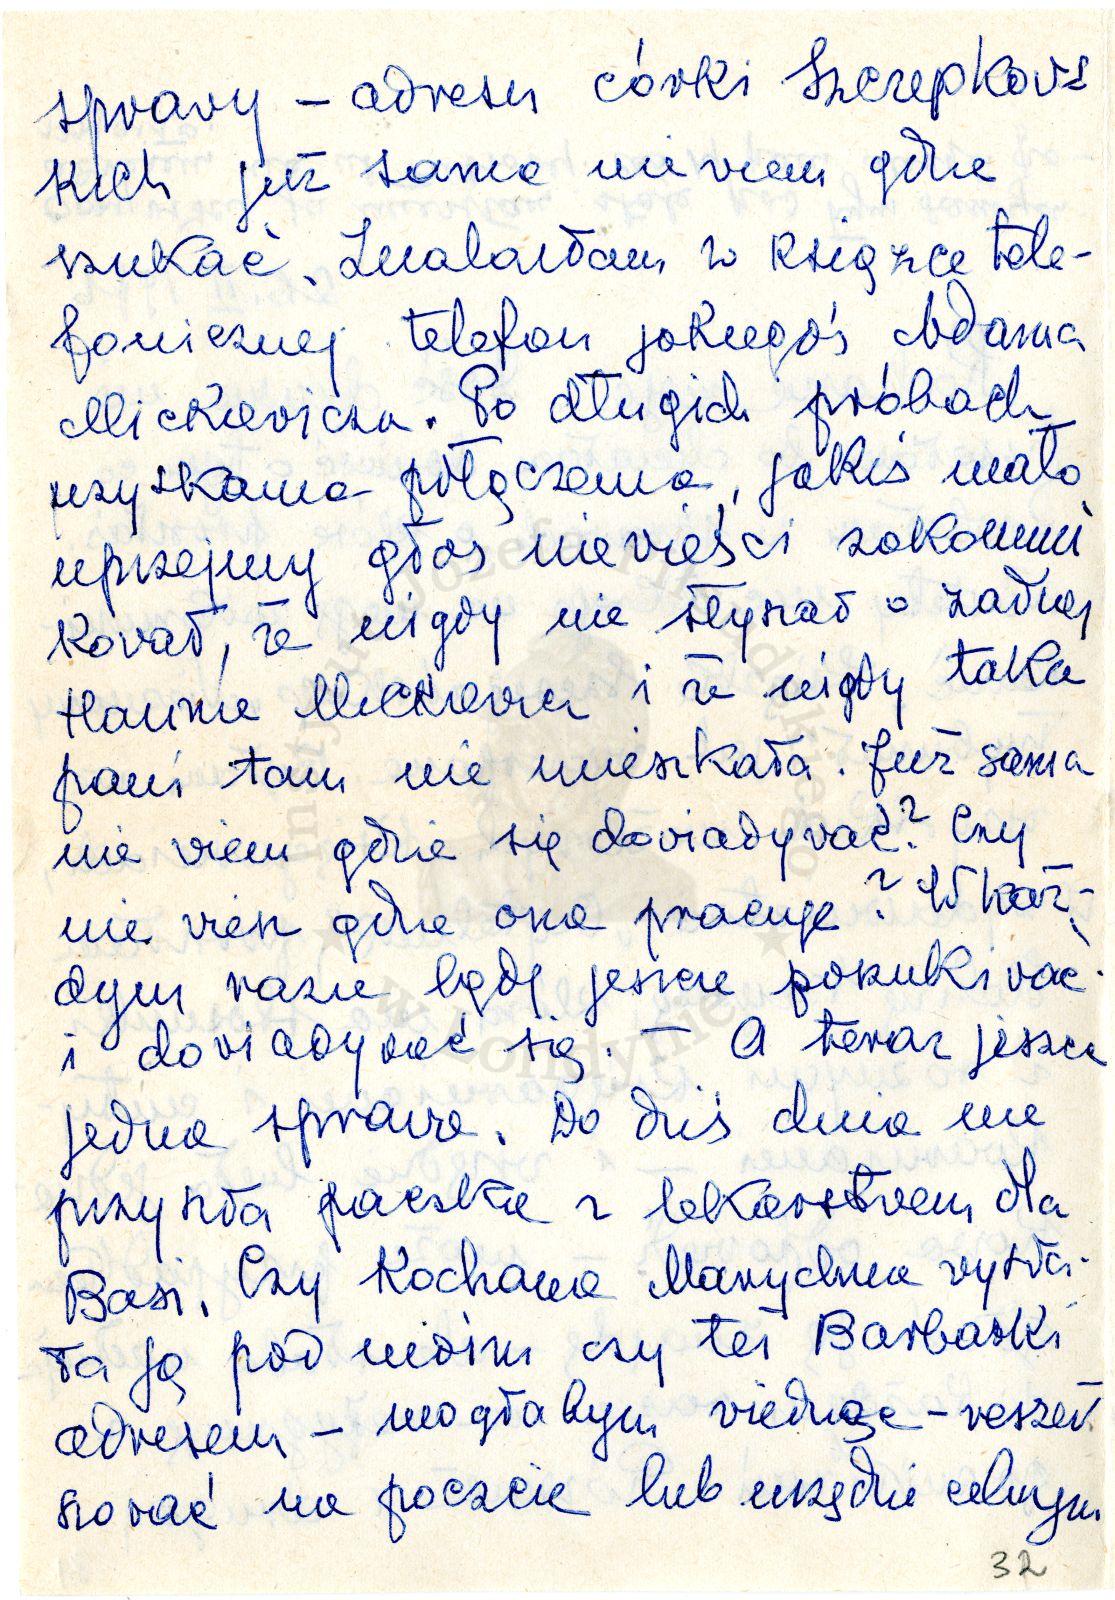 sprawy – adresu córki Szczepkows
kich już sama nie wiem gdzie
szukać. Znalazłam w książce tele-
fonicznej telefon jakiegoś Adama
Mickiewicza. Po długich próbach
uzyskania połączenia, jakiś mało
uprzejmy głos niewieści zakomuni
kował, że nigdy nie słyszał o żadnej
Hannie Mickiewicz i że nigdy taka
pani tam nie mieszkała. Już sama
nie wiem gdzie się dowiadywać? Czy
nie wiesz gdzie ona pracuje? W każ-
dym razie będę jeszcze poszukiwać
i dowiadywać się. – A teraz jeszcze
jedna sprawa. Do dziś dnia nie
przyszła paczka z lekarstwem dla
Basi. Czy Kochana Marychna wysła-
ła ją pod moim czy też Barbarki
adresem – mogłabym wiedząc – reszer
sować na poczcie lub urzędzie celnym
32
Instytut Józefa Piłsudskiego
w Londynie